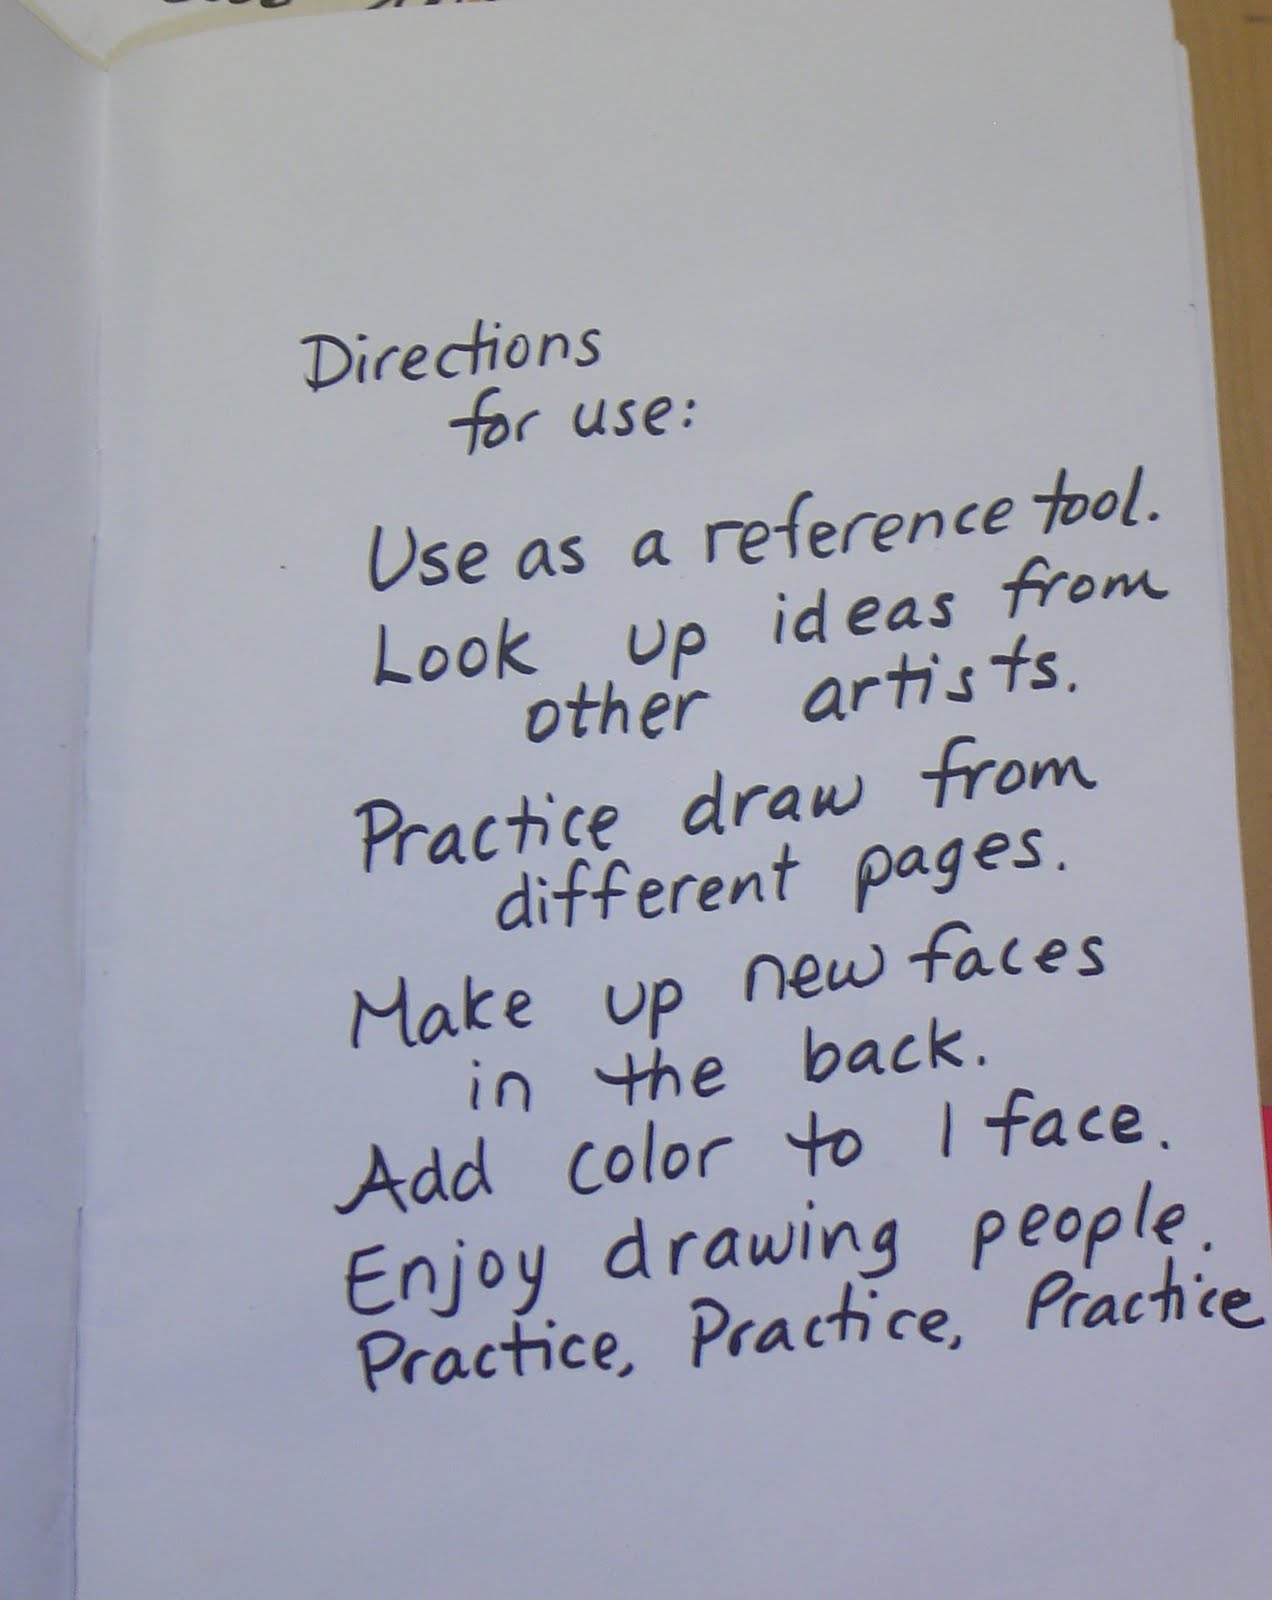 Directions
for use:
Use as a reference tool.
Look up ideas from
other artists.
Practice draw from
different pages.
Make up new faces
in the back.
Add color to 1 face.
Enjoy drawing people.
Practice, Practice, Practice